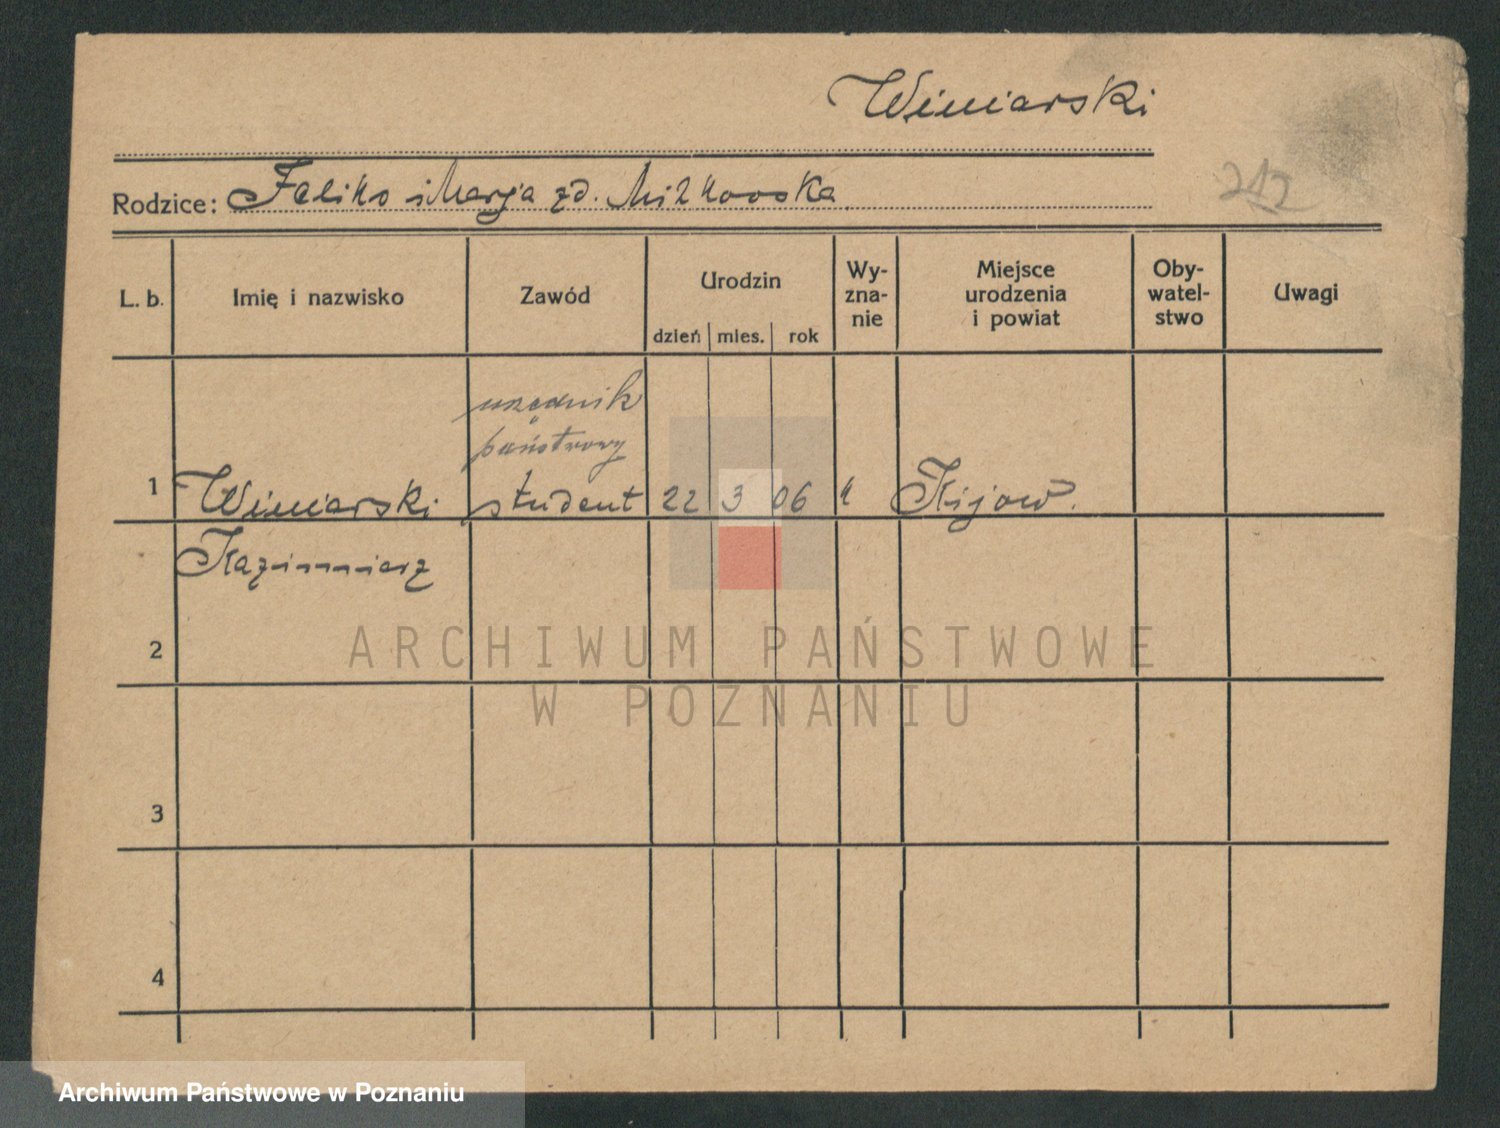 Winiarski
Rodzice: Feliks i Marja zd. Milkowska.
212
L. b. Imię i nazwisko Zawód Urodzin Wy-zna-nie Miejsce urodzenia i powiat Oby-watel-stwo Uwagi
dzień mies. rok
urzędnik
państwowy
1 Winiarski student 22 3 06 Kijow.
Kazimierz
2
ARCHIWUM PAŃSTWOWE
W POZNANIU
3
4
Archiwum Państwowe w Poznaniu